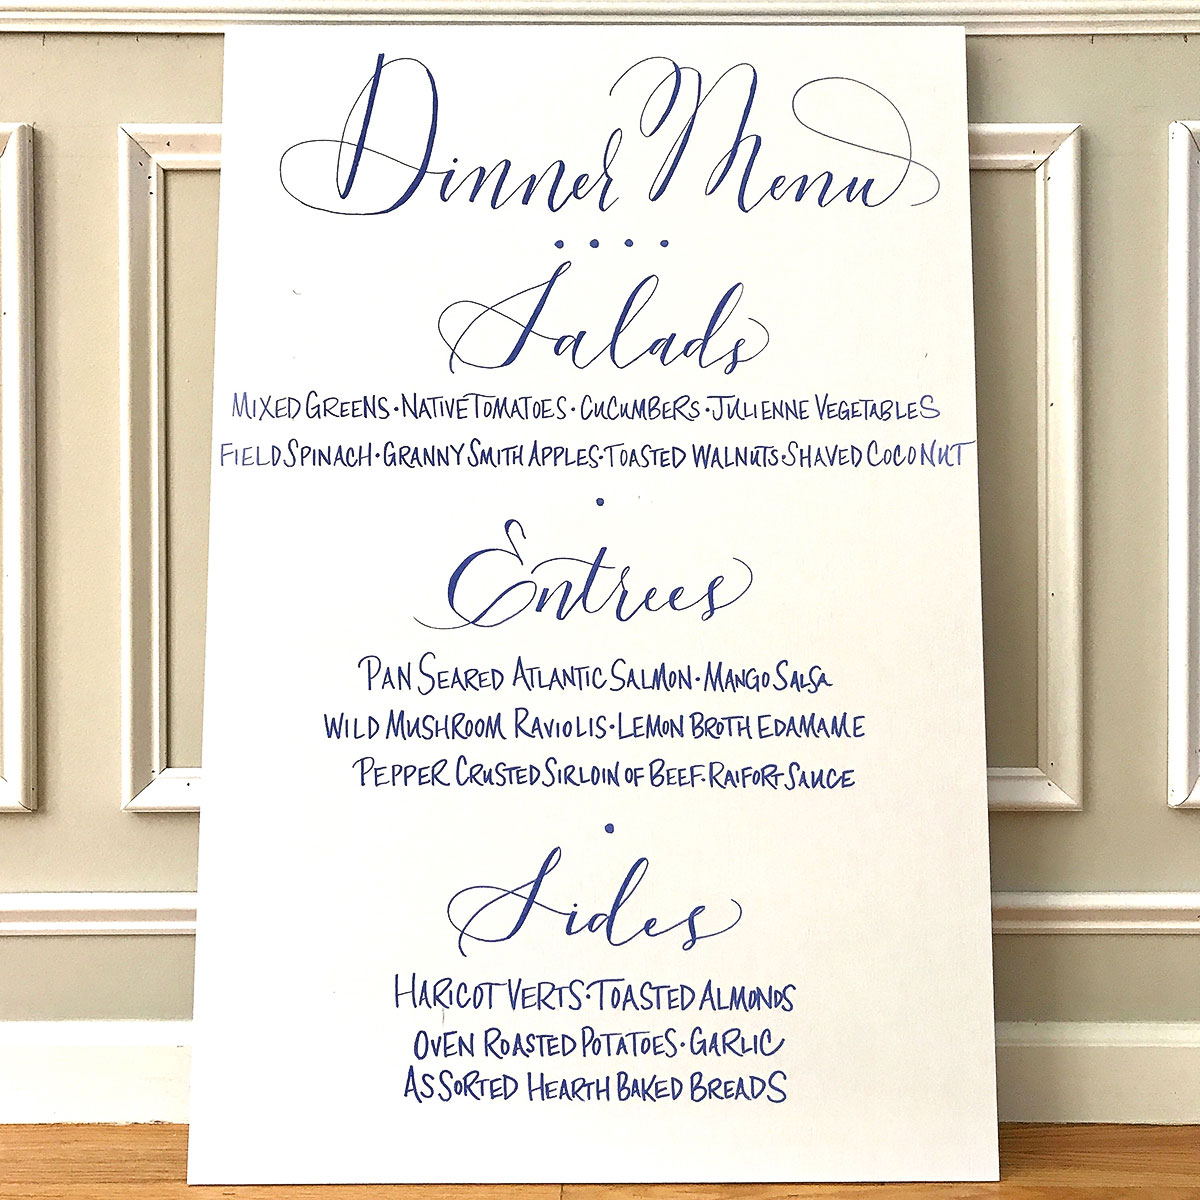 Dinner Menu
Salads
MIXED GREENS · NATIVE TOMATOES · CUCUMBERS · JULIENNE VEGETABLES
FIELD SPINACH · GRANNY SMITH APPLES · TOASTED WALNUTS · SHAVED COCONUT
Entrees
PAN SEARED ATLANTIC SALMON · MANGO SALSA
WILD MUSHROOM RAVIOLIS · LEMON BROTH EDAMAME
PEPPER CRUSTED SIRLOIN OF BEEF · RAIFORT SAUCE
Sides
HARICOT VERTS · TOASTED ALMONDS
OVEN ROASTED POTATOES · GARLIC
ASSORTED HEARTH BAKED BREADS